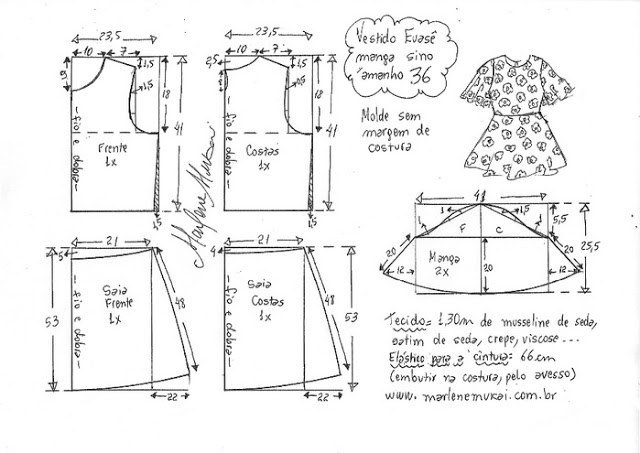 Vestido Evasê
manga sino
tamanho 36
Molde sem
margem de
costura
23,5
10
7
1,5
1,5
18
41
fio e dobra
Frente
1x
1,5
23,5
10
7
2,5
1,5
1,5
18
41
fio e dobra
Costas
1x
1,5
Marlene Mukai
41
1
1,5
1
1
5,5
F
C
20
20
25,5
12
Manga
2x
20
12
21
5
48
53
fio e dobra
Saia
Frente
1x
22
21
4
48
53
fio e dobra
Saia
Costas
1x
22
Tecido = 1,30m de musseline de seda,
cetim de seda, crepe, viscose...
Elástico para a cintura = 66 cm
(embutir na costura, pelo avesso)
www.marlenemukai.com.br